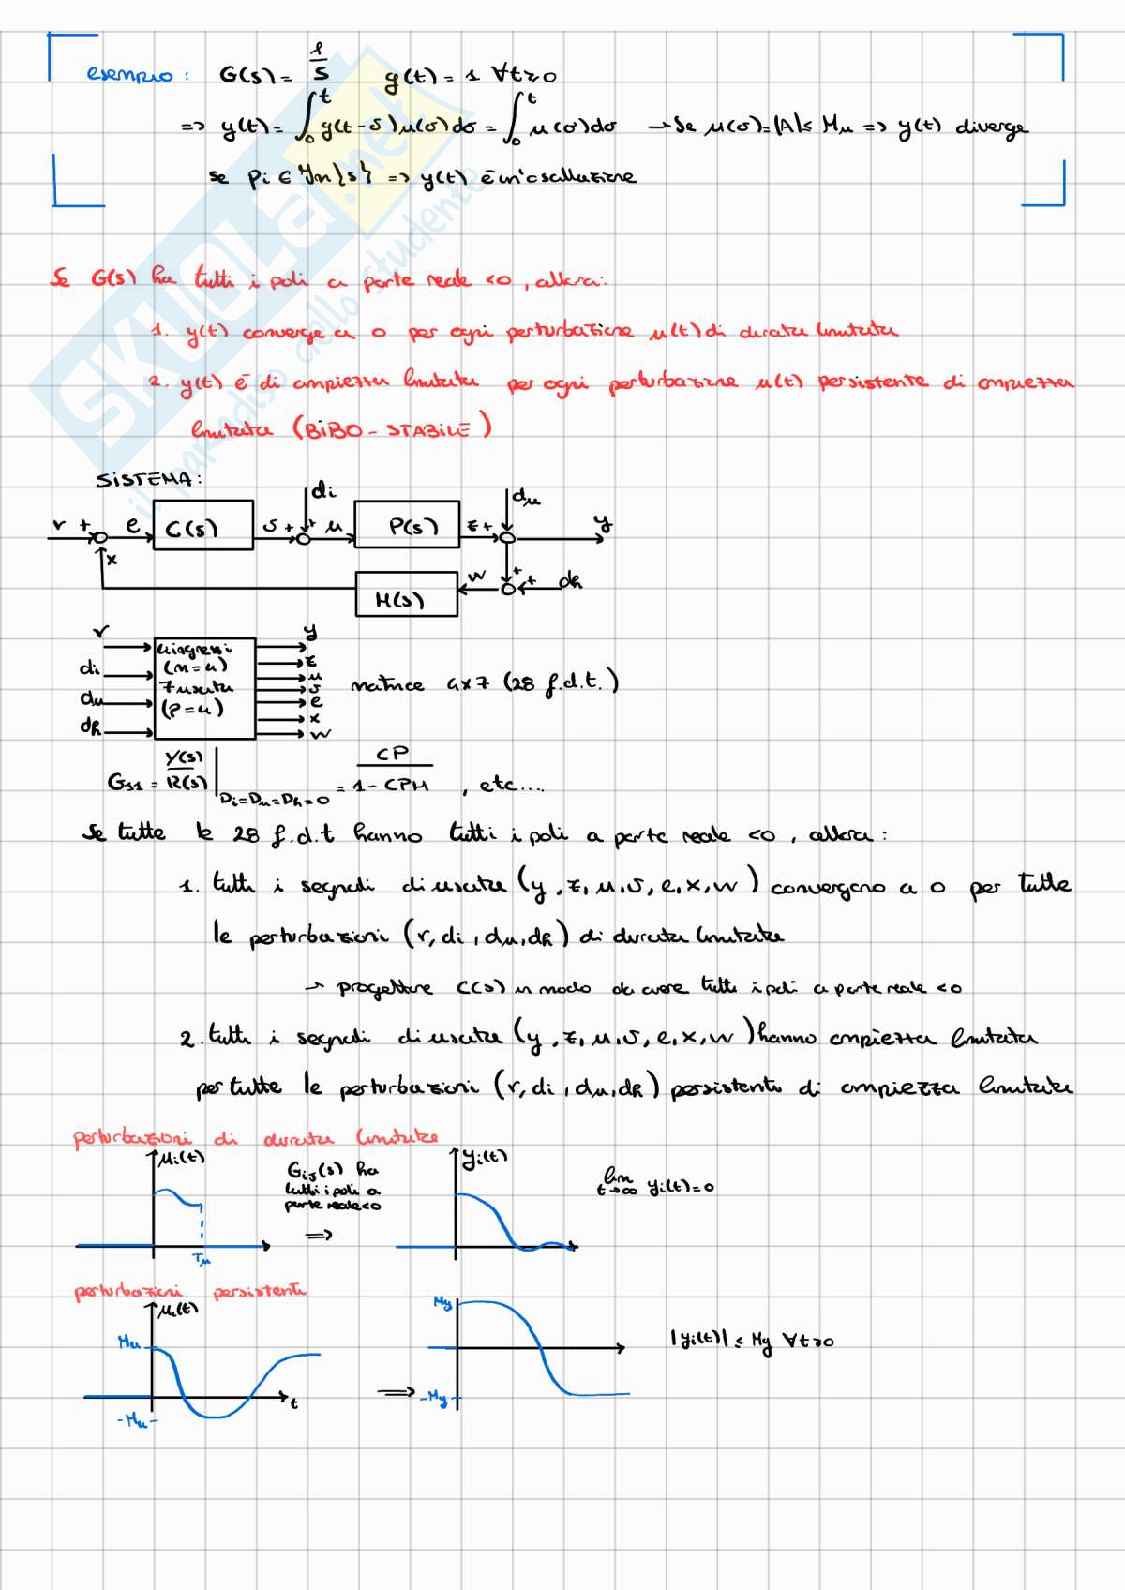 esempio: G(s) = 1/S g(t) = 1 ∀t≥0
=> y(t) = ∫₀ᵗ g(t-σ)u(σ)dσ = ∫₀ᵗ u(σ)dσ → Se u(σ)=|A|≤ Mu => y(t) diverge
se pi ∈ Im{s} => y(t) è un'oscillazione
Se G(s) ha tutti i poli a parte reale <0, allora:
1. y(t) converge a 0 per ogni perturbazione u(t) di durata limitata
2. y(t) è di ampiezza limitata per ogni perturbazione u(t) persistente di ampiezza
limitata (BIBO-STABILE)
SISTEMA:
di du
r + e C(s) v + + u P(s) z + y
x H(s) w + + dh
r y
di z
du u
dh v
e
x
w
4 ingressi
(m=4)
7 uscite
(p=4)
matrice 4x7 (28 f.d.t.)
G11 = Y(s)/R(s) | Di=Du=Dh=0 = CP/1-CPH , etc....
Se tutte le 28 f.d.t hanno tutti i poli a parte reale <0, allora:
1. tutti i segnali di uscita (y, z, u, v, e, x, w) convergono a 0 per tutte
le perturbazioni (r, di, du, dh) di durata limitata
→ progettare C(s) in modo da avere tutti i poli a parte reale <0
2. tutti i segnali di uscita (y, z, u, v, e, x, w) hanno ampiezza limitata
per tutte le perturbazioni (r, di, du, dh) persistenti di ampiezza limitata
perturbazioni di durata limitata
ui(t) Gij(s) ha tutti i poli a parte reale <0 => yi(t) lim t→∞ yi(t)=0
Tu
perturbazioni persistenti
ui(t) My
Mu |yi(t)| ≤ My ∀t≥0
t => -My
-Mu
SKUOLA.net
il paradiso dello studente